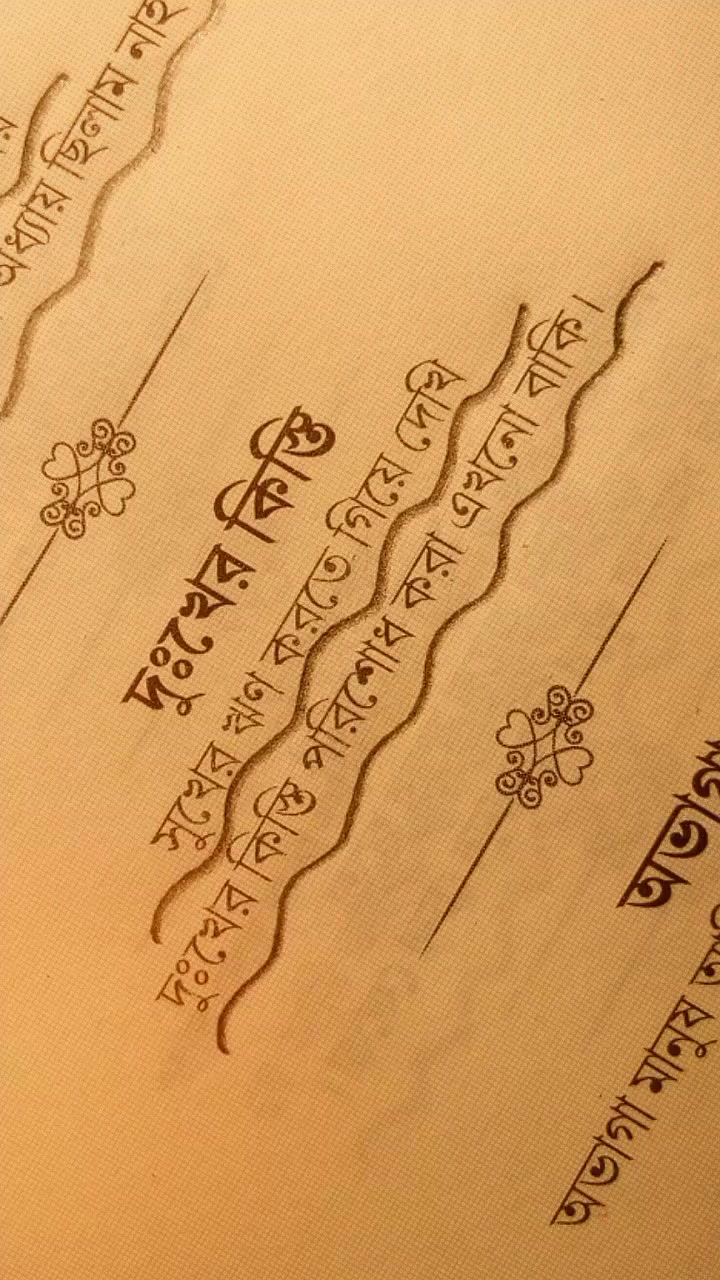 অধ্যায় ছিলাম
দুঃখের কিস্তি
সুখের ঋণ করতে গিয়ে দেখি
দুঃখের কিস্তি পরিশোধ করা এখনো বাকি।
অভাগা মানুষ